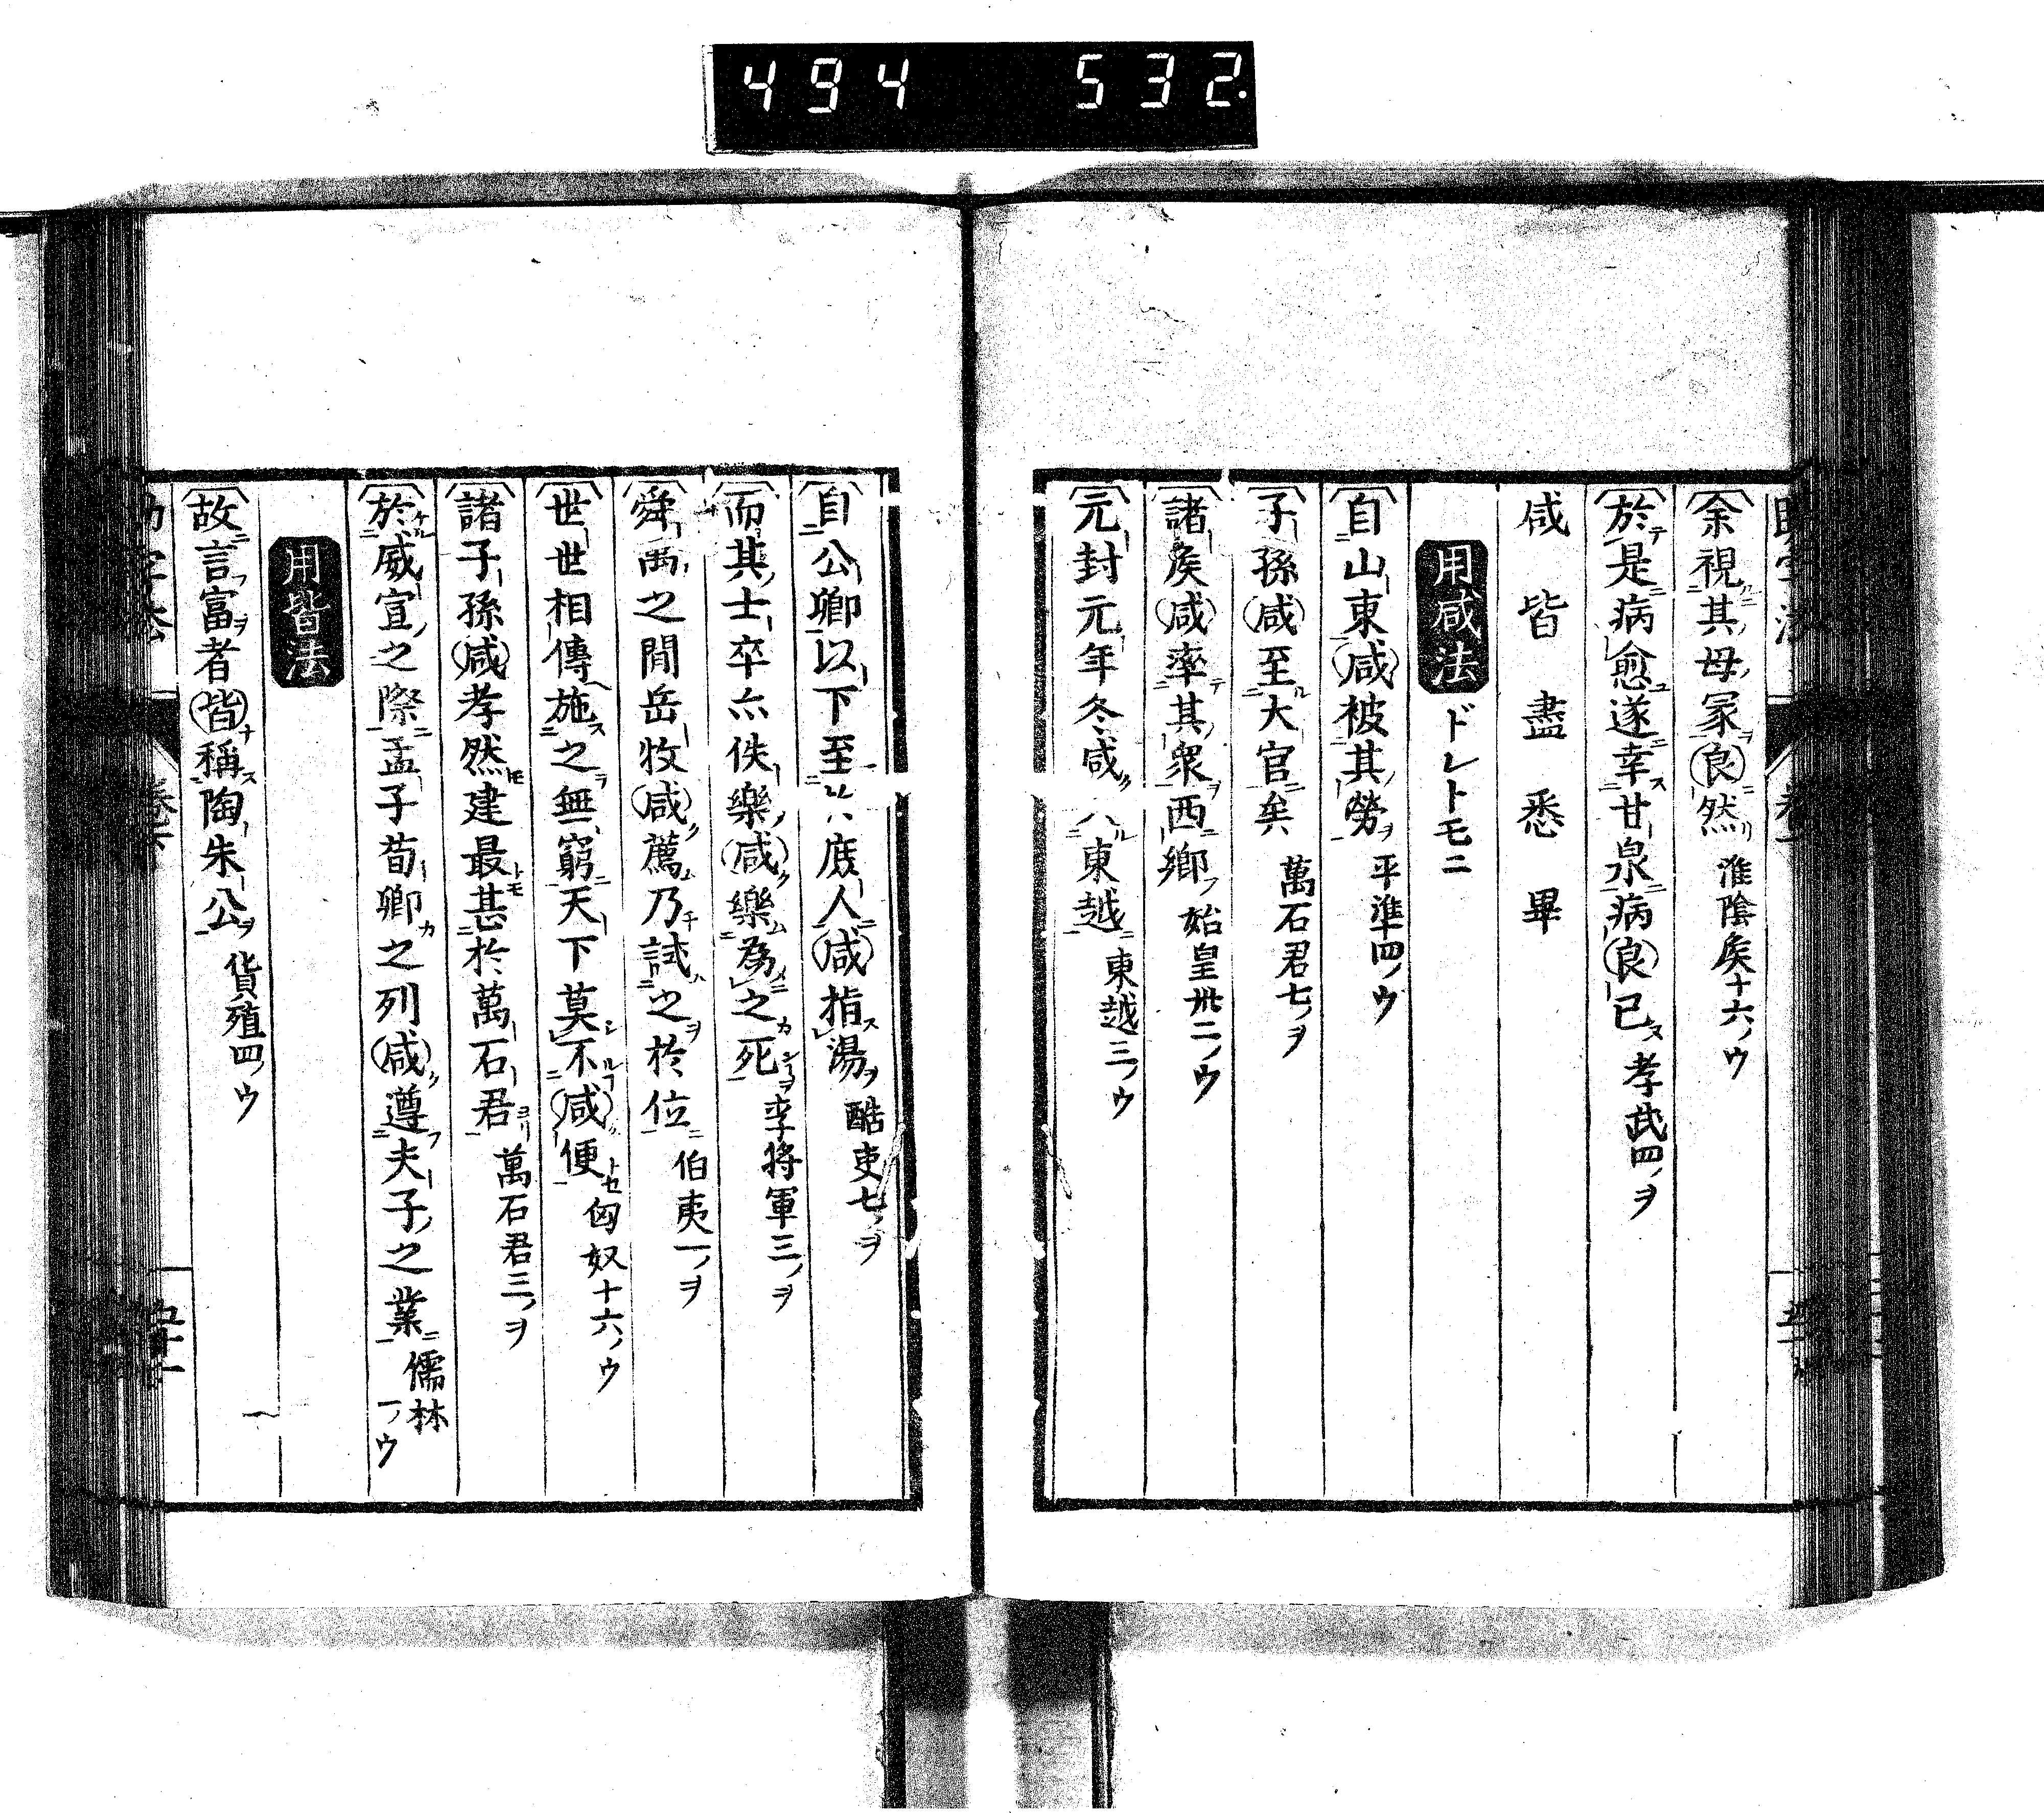 494 532.
余視其母冢良然 淮陰矦十六ノウ
於是病愈遂幸甘泉病良已 孝武四ノヲ
咸皆盡悉畢
用咸法 ドレトモニ
自山東咸被其勞 平準四ノウ
子孫咸至大官矣 萬石君七ノヲ
諸矦咸率其衆西鄉 始皇卅二ノウ
元封元年冬咸入東越 東越三ノウ
自公卿以下至於庶人咸指湯 酷吏七ノヲ
而其士卒亦佚樂咸樂爲之死 李將軍三ノヲ
舜禹之間岳牧咸薦乃試之於位 伯夷一ノヲ
世世相傳施之無窮天下莫不咸便 匈奴十六ノウ
諸子孫咸孝然建最甚於萬石君 萬石君三ノヲ
於威宣之際孟子荀卿之列咸遵夫子之業 儒林一ノウ
用皆法
故言富者皆稱陶朱公 貨殖四ノウ